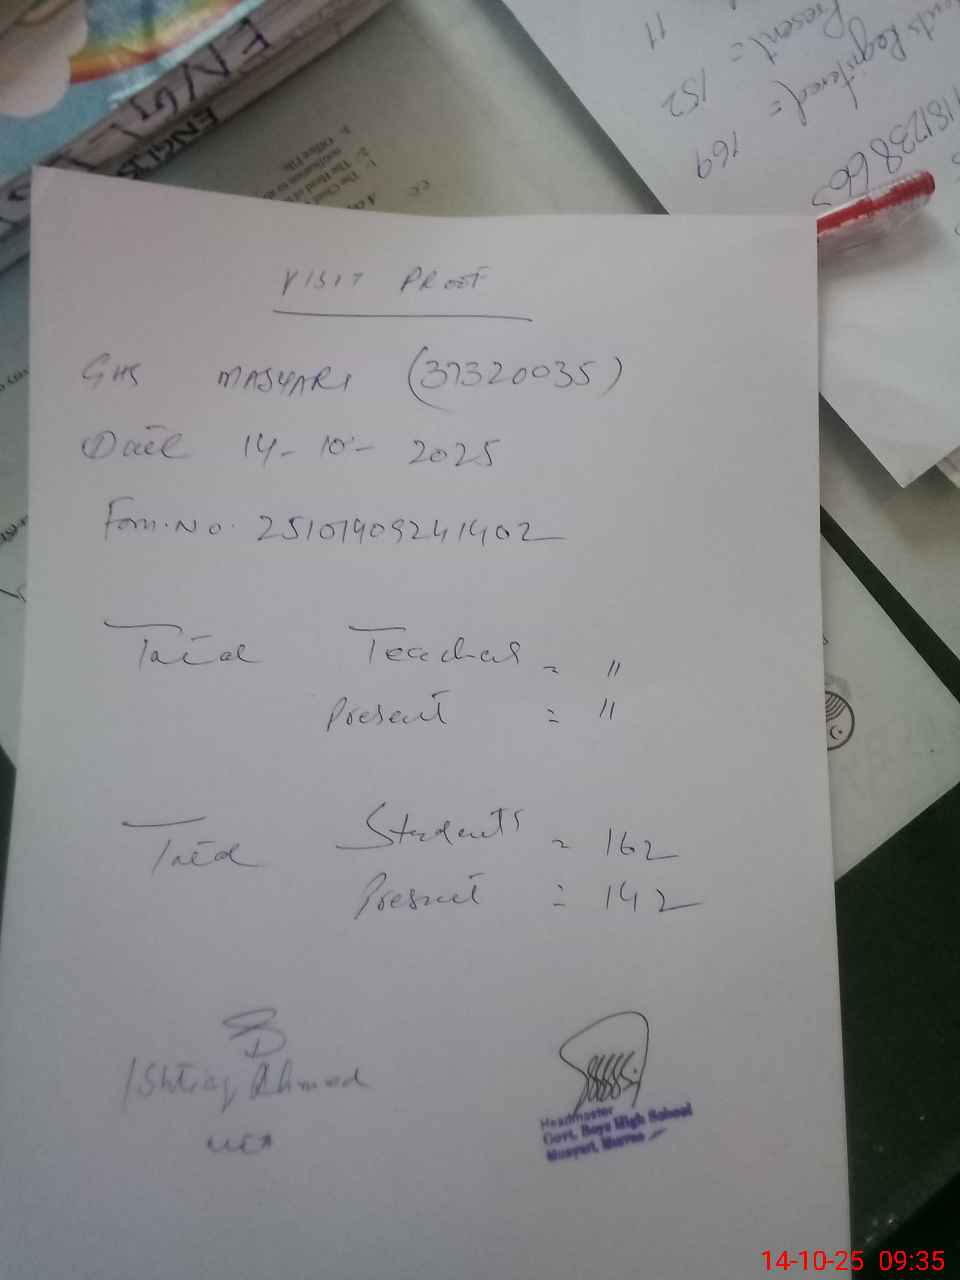 VISIT PROOF
GHS MASYARI (37320035)
Date 14-10-2025
Form.No. 25101409241402
Total Teachers = 11
Present = 11
Total Students = 162
Present = 142
Ishtiaq Ahmad
Headmaster
Govt. Boys High School
Masyari, Murree
Registered = 169
Present = 152
11
ENGLIS
CC
Office File.
14-10-25 09:35